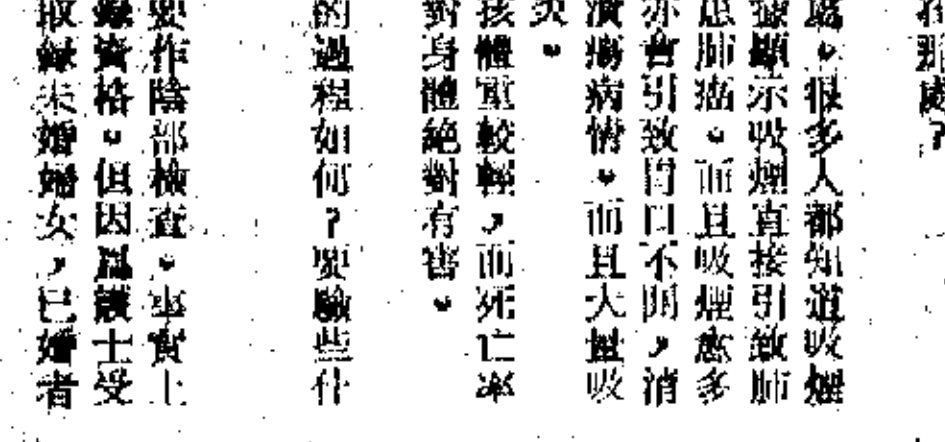 在那處?
處。很多人都知道吸煙
據顯示吸煙直接引致肺
患肺癌。而且吸煙愈多
亦會引致胃口不開,消
潰瘍病情。而且大量吸
炎。
孩體重較輕,而死亡率
對身體絕對有害。
的過程如何?要驗些什
要作陰部檢查。事實上
錄資格。但因爲護士受
取錄未婚婦女,已婚者